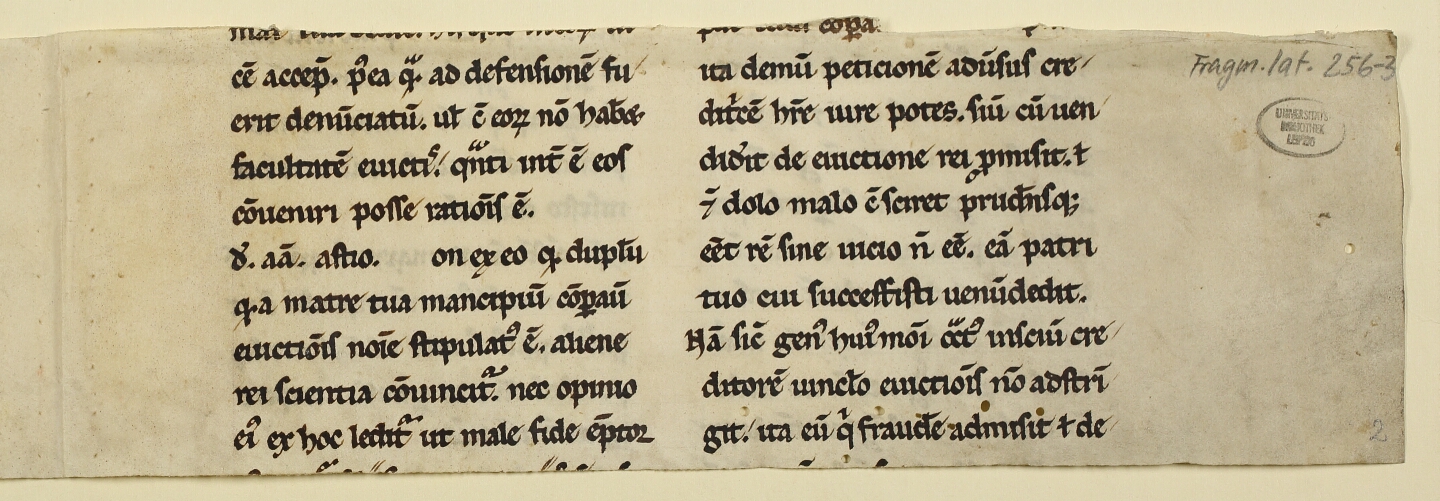 cē accep̄. p̄ea q̄. ad defensionē fu/
erit denūciatū. ul̄ ē eoꝝ nō habe
facultatē euicti/ qnti int̄ ē eos
cōueniri posse ratiōis ē.
aā. astio. on ex eo q. duplū
q. a matre tua mancipiū cōparū
euictiōis noīe stipulatꝰ ē. aliene
rei scientia cōuincit̄. nec opinio
ei ex hoc ledit̄ ut male fide ēptoꝛ
cōpa.
ita demū peticionē adūsus cre/
dit̄cē hr̄e iure potes. siū cū uen/
didit de euictione rei ꝓmisit. ł
⁊ dolo malo ē sciret prudēsqꝫ
eēt rē sine uicio n̄ eē. eā patri
tuo cui successisti uenūdedit.
Nā sic̄ genꝰ huiꝰmōi insciū cre/
ditorē uincl̄o euictiōis nō adstrī
git./ ita eū q̄ fraudē admisit ł de/
Fragm. lat. 256-3
UNIVERSITÄTS
BIBLIOTHEK
LEIPZIG
2